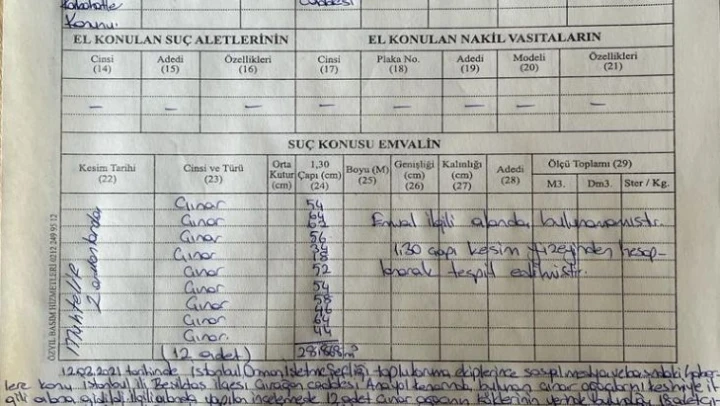 Kanunu.
Caddesi
EL KONULAN SUÇ ALETLERİNİN EL KONULAN NAKİL VASITALARIN
Cinsi (14) Adedi (15) Özellikleri (16) Cinsi (17) Plaka No. (18) Adedi (19) Modeli (20) Özellikleri (21)
— — — — — — — —
SUÇ KONUSU EMVALİN
Kesim Tarihi (22) Cinsi ve Türü (23) Orta Kutur (cm) 1,30 Çapı (cm) (24) Boyu (M) (25) Genişliği (cm) (26) Kalınlığı (cm) (27) Adedi (28) Ölçü Toplamı (29)
M3. Dm3. Ster / Kg.
Muhtelif zamanlarda
Çınar 54
Çınar 64
62
Çınar 56
Çınar
Çınar 52
Çınar 54
Çınar 58
46
Çınar 64
Çınar. 44
Emval ilgili alanda bulunamamıştır.
1,30 çapı kesim yüzeyinden hesap-
lanarak tespit edilmiştir.
(12 adet)
ÖZYIL BASIM HİZMETLERİ 0212 249 95 12
12.02.2021 tarihinde İstanbul Orman İşletme Şefliği toplu koruma ekiplerince sosyal medya ve basındaki haber-
lere konu İstanbul ili Beşiktaş ilçesi Çırağan caddesi Anayol kenarında bulunan çınar ağaçlarını kesimiyle il-
gili alana gidildi. İlgili alanda yapılan incelemede 12 adet çınar ağacının köklerinin yerinde bulunduğu